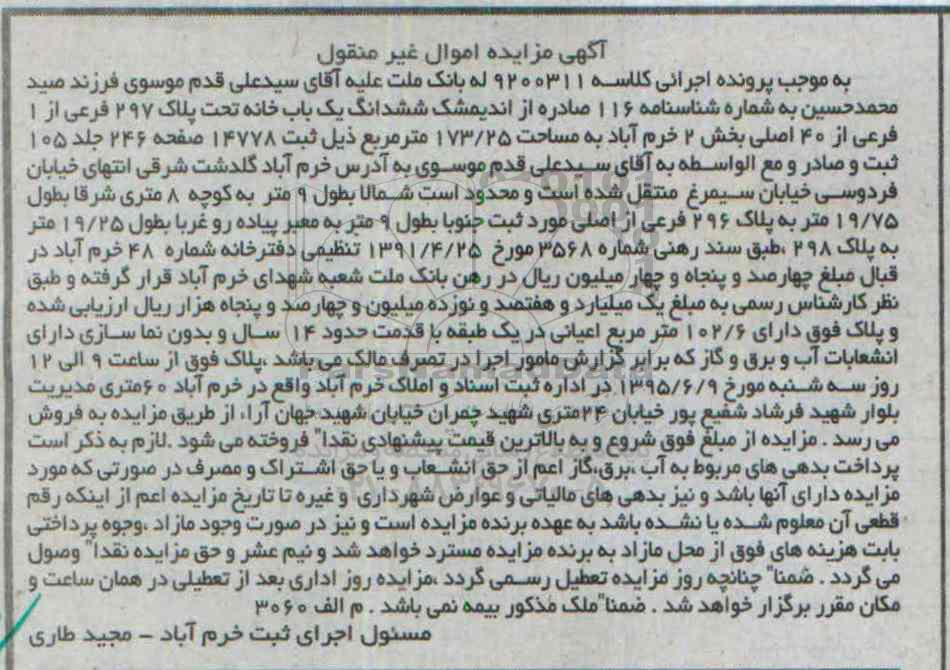 آگهی مزایده اموال غیر منقول
به موجب پرونده اجرائی کلاسه ۹۲۰۰۳۱۱ له بانک ملت علیه آقای سیدعلی قدم موسوی فرزند صید
محمدحسین به شماره شناسنامه ۱۱۶ صادره از اندیمشک ششدانگ یک باب خانه تحت پلاک ۲۹۷ فرعی از ۱
فرعی از ۴۰ اصلی بخش ۲ خرم آباد به مساحت ۱۷۳/۲۵ مترمربع ذیل ثبت ۱۴۷۷۸ صفحه ۲۴۶ جلد ۱۰۵
ثبت و صادر و مع الواسطه به آقای سیدعلی قدم موسوی به آدرس خرم آباد گلدشت شرقی انتهای خیابان
فردوسی خیابان سیمرغ منتقل شده است و محدود است شمالا بطول ۹ متر به کوچه ۸ متری شرقا بطول
۱۹/۷۵ متر به پلاک ۲۹۶ فرعی از اصلی مورد ثبت جنوبا بطول ۹ متر به معبر پیاده رو غربا بطول ۱۹/۲۵ متر
به پلاک ۲۹۸ ،طبق سند رهنی شماره ۳۵۶۸ مورخ ۱۳۹۱/۴/۲۵ تنظیمی دفترخانه شماره ۴۸ خرم آباد در
قبال مبلغ چهارصد و پنجاه و چهار میلیون ریال در رهن بانک ملت شعبه شهدای خرم آباد قرار گرفته و طبق
نظر کارشناس رسمی به مبلغ یک میلیارد و هفتصد و نوزده میلیون و چهارصد و پنجاه هزار ریال ارزیابی شده
و پلاک فوق دارای ۱۰۲/۶ متر مربع اعیانی در یک طبقه با قدمت حدود ۱۴ سال و بدون نما سازی دارای
انشعابات آب و برق و گاز که برابر گزارش مامور اجرا در تصرف مالک می باشد ،پلاک فوق از ساعت ۹ الی ۱۲
روز سه شنبه مورخ ۱۳۹۵/۶/۹ در اداره ثبت اسناد و املاک خرم آباد واقع در خرم آباد ۶۰متری مدیریت
بلوار شهید فرشاد شفیع پور خیابان ۲۴متری شهید چمران خیابان شهید جهان آرا، از طریق مزایده به فروش
می رسد . مزایده از مبلغ فوق شروع و به بالاترین قیمت پیشنهادی نقدا" فروخته می شود .لازم به ذکر است
پرداخت بدهی های مربوط به آب ،برق،گاز اعم از حق انشعاب و یا حق اشتراک و مصرف در صورتی که مورد
مزایده دارای آنها باشد و نیز بدهی های مالیاتی و عوارض شهرداری و غیره تا تاریخ مزایده اعم از اینکه رقم
قطعی آن معلوم شده یا نشده باشد به عهده برنده مزایده است و نیز در صورت وجود مازاد ،وجوه پرداختی
بابت هزینه های فوق از محل مازاد به برنده مزایده مسترد خواهد شد و نیم عشر و حق مزایده نقدا" وصول
می گردد . ضمنا" چنانچه روز مزایده تعطیل رسمی گردد ،مزایده روز اداری بعد از تعطیلی در همان ساعت و
مکان مقرر برگزار خواهد شد . ضمنا"ملک مذکور بیمه نمی باشد . م الف ۳۰۶۰
مسئول اجرای ثبت خرم آباد - مجید طاری